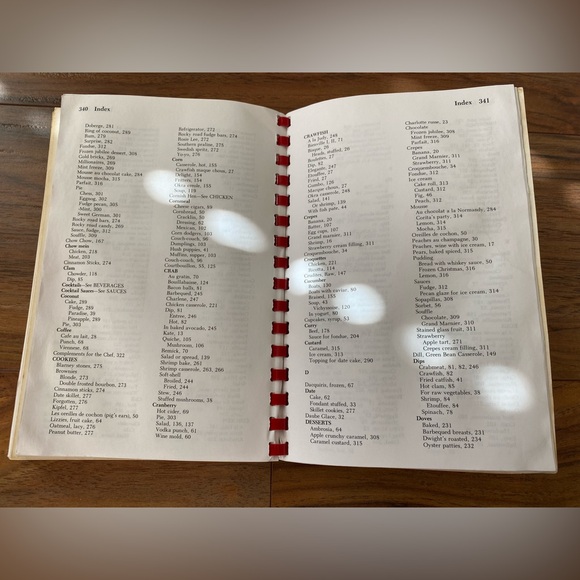 340 Index
Doberge, 291
Ring of coconut, 289
Rum, 279
Surprise, 282
Fondue, 312
Frozen jubilee dessert, 306
Gold bricks, 288
Millionaires, 288
Mint freeze, 309
Mousse au chocolat cake, 294
Mousse stocks, 313
Parfait, 316
Pie
Chess, 301
Eggnog, 302
Fudge pecan, 305
Mint, 300
Sweet German, 301
Rocky road bars, 274
Rocky road candy, 260
Sauce, fudge, 312
Souffle, 309
Chow Chow, 167
Chow mein
Chicken, 218
Meat, 203
Cinnamon Sticks, 274
Clam
Chowder, 118
Dip, 85
Cocktails—See BEVERAGES
Cocktail Sauces—See SAUCES
Coconut
Cake, 289
Fudge, 289
Paradise, 39
Pineapple, 289
Pie, 302
Coffee
Cafe au lait, 28
Punch, 68
Viennese, 68
Complements for the Chef, 322
COOKIES
Blarney stones, 275
Brownies
Blonde, 273
Double frosted bourbon, 273
Cinnamon sticks, 274
Date skillet, 277
Forgotten, 276
Kipfel, 277
Les oreilles de cochon (pig's ears), 50
Lizzies, fruit cake, 64
Oatmeal, lacy, 276
Peanut butter, 277
Refrigerator, 272
Rocky road fudge bars, 274
Ruth Lee, 272
Southern praline, 275
Swedish spritz, 272
Corn
Casserole, hot, 155
Crawfish maque choux, 27
Delight, 154
Fritters, 154
Okra creole, 155
Soup, 119
Cornish Hen—See CHICKEN
Cornmeal
Cheese cigars, 89
Cornbread, 30
Cracklin, 30
Dressing, 62
Mexican, 102
Corn dodgers, 103
Couch-couch, 96
Dumplings, 103
Hush puppies, 41
Muffins, supper, 103
Couch-couch, 96
Courtbouillon, 55, 125
CRAB
Au gratin, 70
Bouillabaisse, 124
Bacon balls, 81
Barbequed, 245
Charlene, 247
Crabmeat casserole, 221
Dip, 81
Entree, 246
Hot, 82
In baked avocado, 245
Kate, 13
Quiche, 105
Mushroom, 106
Remick, 70
Salad or spread, 139
Shrimp bake, 261
Shrimp casserole, 263, 266
Soft shell
Broiled, 244
Fried, 244
Stew, 246
Stuffed mushrooms, 38
Cranberry
Hot cider, 69
Pie, 303
Salad, 136, 137
Vodka punch, 61
Wine mold, 60
Index 341
CRAWFISH
a la Judy, 248
Bisque, 20
Heads, stuffed, 20
Boulettes, 27
Dip, 82
Elegante, 247
Etouffee, 27
Fried, 27
Gumbo, 120
Maque choux, 27
Okra casserole, 248
Salad, 141
Or shrimp, 139
With fish pate, 44
Crepes
Banana, 20
Batter, 107
Egg rope, 107
Grand marnier, 311
Shrimp, 16
Strawberry cream filling, 311
Croquembouche, 34
Croquettes
Chicken, 221
Custard
Caramel, 315
Ice cream, 313
Topping for date cake, 290
D
Dacquiris, frozen, 67
Date
Cake, 62
Fondant stuffed, 35
Skillet cookies, 277
Daube Glace, 32
DESSERTS
Ambrosia, 64
Apple crunchy caramel, 308
Caramel custard, 315
Charlotte russe, 23
Chocolate
Frozen jubilee, 308
Mint freeze, 309
Parfait, 316
Crepes
Banana, 20
Grand Marnier, 311
Strawberry, 311
Croquembouche, 34
Fondue, 312
Ice cream
Cake roll, 313
Custard, 312
Peach, 312
Mousse
Au chocolat a la Normandy, 284
Cupla's party, 314
Lemon, 314
Mocha, 315
Oreilles de cochon, 50
Peaches au champagne, 30
Peaches, wine with ice cream, 17
Pears, baked spiced, 315
Pudding
Bread with whiskey sauce, 50
Frozen Christmas, 316
Lemon, 316
Sauces
Fudge, 312
Pecan glaze for ice cream, 313
Sopapillas, 308
Sorbet, 56
Souffle
Chocolate, 309
Grand Marnier, 310
Stained glass fruit, 311
Strawberry
Apple tart, 271
Crepes cream filling, 311
Dill, Green Bean Casserole, 149
Dips
Crabmeat, 81, 82, 246
Crawfish, 82
Fried catfish, 41
Hot clam, 85
For raw vegetables, 38
Shrimp, 84
Etouffee, 84
Spinach, 78
Doves
Baked, 231
Barbequed breasts, 231
Dwight's roasted, 234
Oyster patties, 232